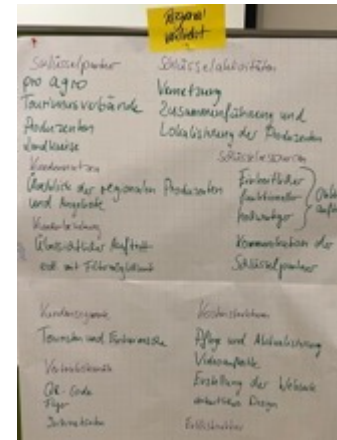 Regional
Schlüsselpartner
pro agro
Tourismusverbände
Produzenten
Landkreise
Kundennutzen
Überblick der regionalen Produzenten
und Angebote
Kundenbeziehung
Übersichtlicher Auftritt
mit Filtermöglichkeit
Schlüsselaktivitäten
Vernetzung
Zusammenführung und
Lokalisierung der Produzenten
Schlüsselressourcen
Einheitlicher
funktionaler
hochwertiger
Kommunikation der
Schlüsselpartner
Kundensegmente
Touristen und Einheimische
Vertriebskanäle
QR-Code
Flyer
Internetseiten
Kostenstruktur
Pflege und Aktualisierung
Erstellung der Website
Design